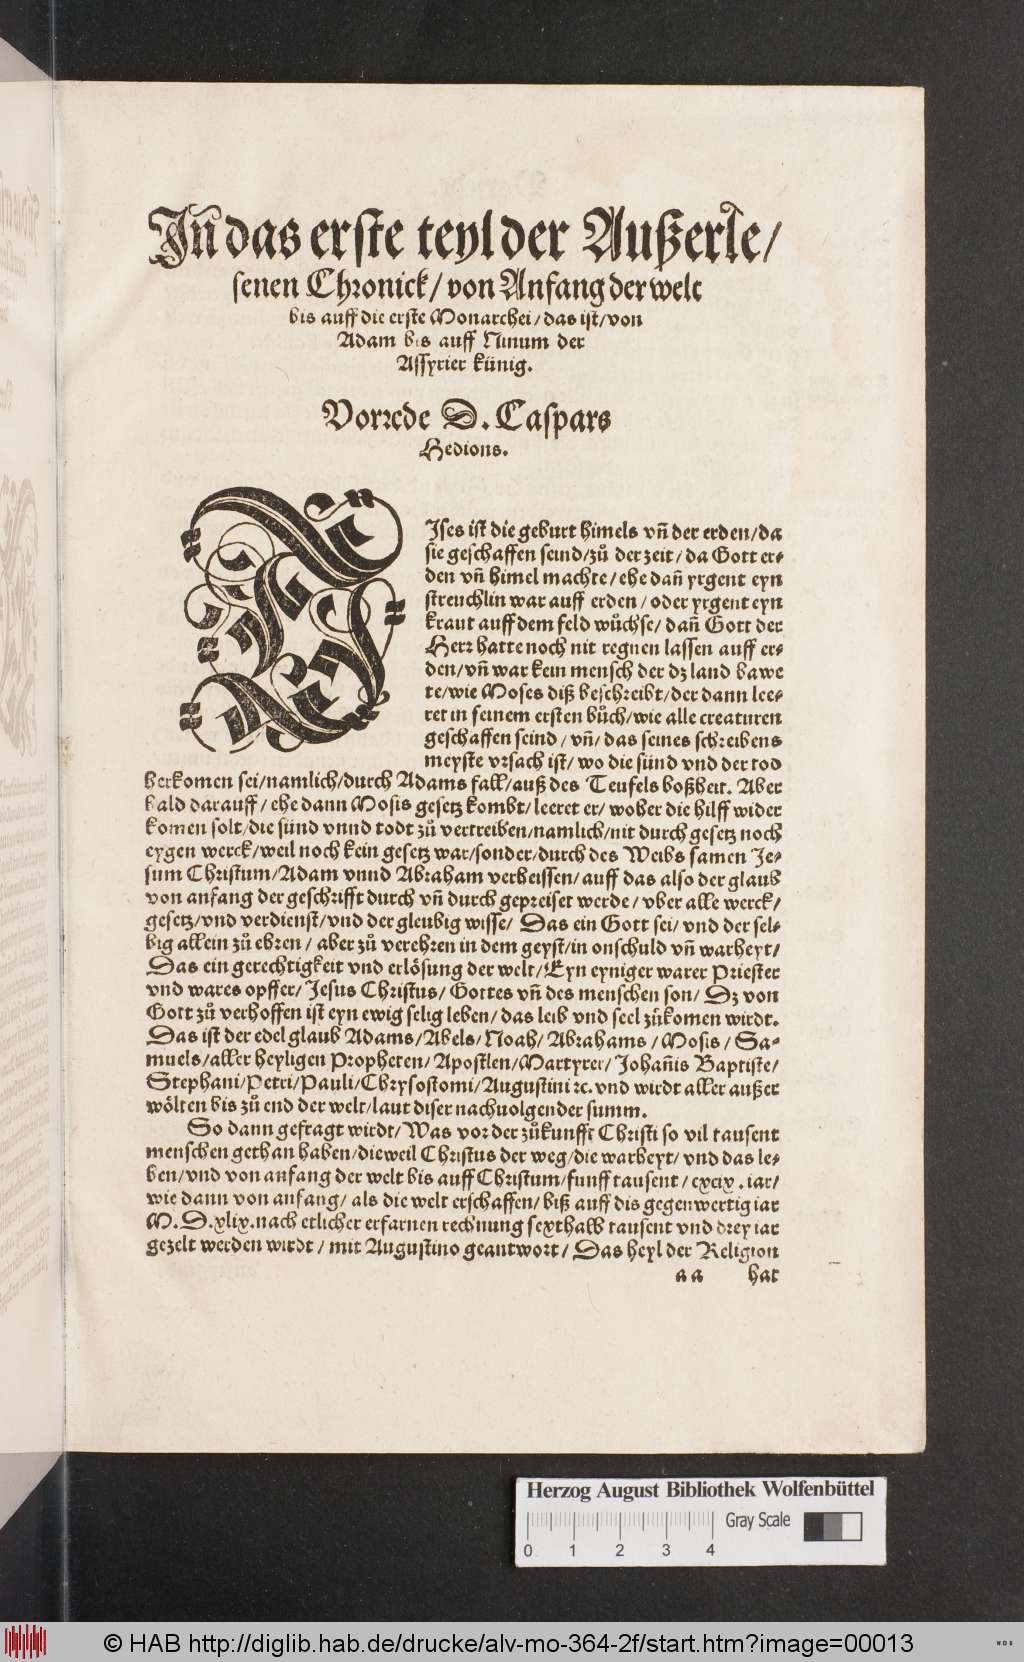 Jn̄ das erste teyl der Außerle/
senen Chronick/ von Anfang der welt
bis auff die erste Monarchei/ das ist/ von
Adam bis auff Ninum der
Assyrier künig.
Vorrede D. Caspars
Hedions.
DJses ist die geburt himels vn̄ der erden/ da
sie geschaffen seind/ zů der zeit/ da Gott er=
den vn̄ himel machte/ ehe dan̄ yrgent eyn
streuchlin war auff erden/ oder yrgent eyn
kraut auff dem feld wüchse/ dan̄ Gott der
Herr hatte noch nit regnen lassen auff er=
den/ vn̄ war kein mensch der dz land bawe
te/ wie Moses diß beschreibt/ der dann lee=
ret in seinem ersten bůch/ wie alle creaturen
geschaffen seind/ vn̄/ das seines schreibens
meyste vrsach ist/ wo die sünd vnd der tod
herkomen sei/ namlich/ durch Adams fall/ auß des Teufels boßheit. Aber
bald darauff/ ehe dann Mosis gesetz kombt/ leeret er/ woher die hilff wider
komen solt/ die sünd vnnd todt zů vertreiben/ namlich/ nit durch gesetz noch
eygen werck/ weil noch kein gesetz war/ sonder/ durch des Weibs samen Je=
sum Christum/ Adam vnnd Abraham verheissen/ auff das also der glaub
von anfang der geschrifft durch vn̄ durch gepreiset werde/ vber alle werck/
gesetz/ vnd verdienst/ vnd der gleubig wisse/ Das ein Gott sei/ vnd der sel=
big allein zů ehren/ aber zů verehren in dem geyst/ in onschuld vn̄ warheyt/
Das ein gerechtigkeit vnd erlösung der welt/ Eyn eyniger warer Priester
vnd wares opffer/ Jesus Christus/ Gottes vn̄ des menschen son/ Dz von
Gott zů verhoffen ist eyn ewig selig leben/ das leib vnd seel zůkomen wirdt.
Das ist der edel glaub Adams/ Abels/ Noah/ Abrahams/ Mosis/ Sa=
muels/ aller heyligen Propheten/ Apostlen/ Martyrer/ Johan̄is Baptiste/
Stephani/ Petri/ Pauli/ Chrysostomi/ Augustini ꝛc. vnd wirdt aller außer
wölten bis zů end der welt/ laut diser nachuolgender summ.
So dann gefragt wirdt/ Was vor der zůkunfft Christi so vil tausent
menschen gethan haben/ dieweil Christus der weg/ die warheyt/ vnd das le=
ben/ vnd von anfang der welt bis auff Christum/ funff tausent/ cxcix. iar/
wie dann von anfang/ als die welt erschaffen/ biß auff dis gegenwertig iar
M. D. xlix. nach etlicher erfarnen rechnung sexthalb tausent vnd drey iar
gezelt werden wirdt/ mit Augustino geantwort/ Das heyl der Religion
aa hat
Herzog August Bibliothek Wolfenbüttel
Gray Scale
0 1 2 3 4
© HAB http://diglib.hab.de/drucke/alv-mo-364-2f/start.htm?image=00013